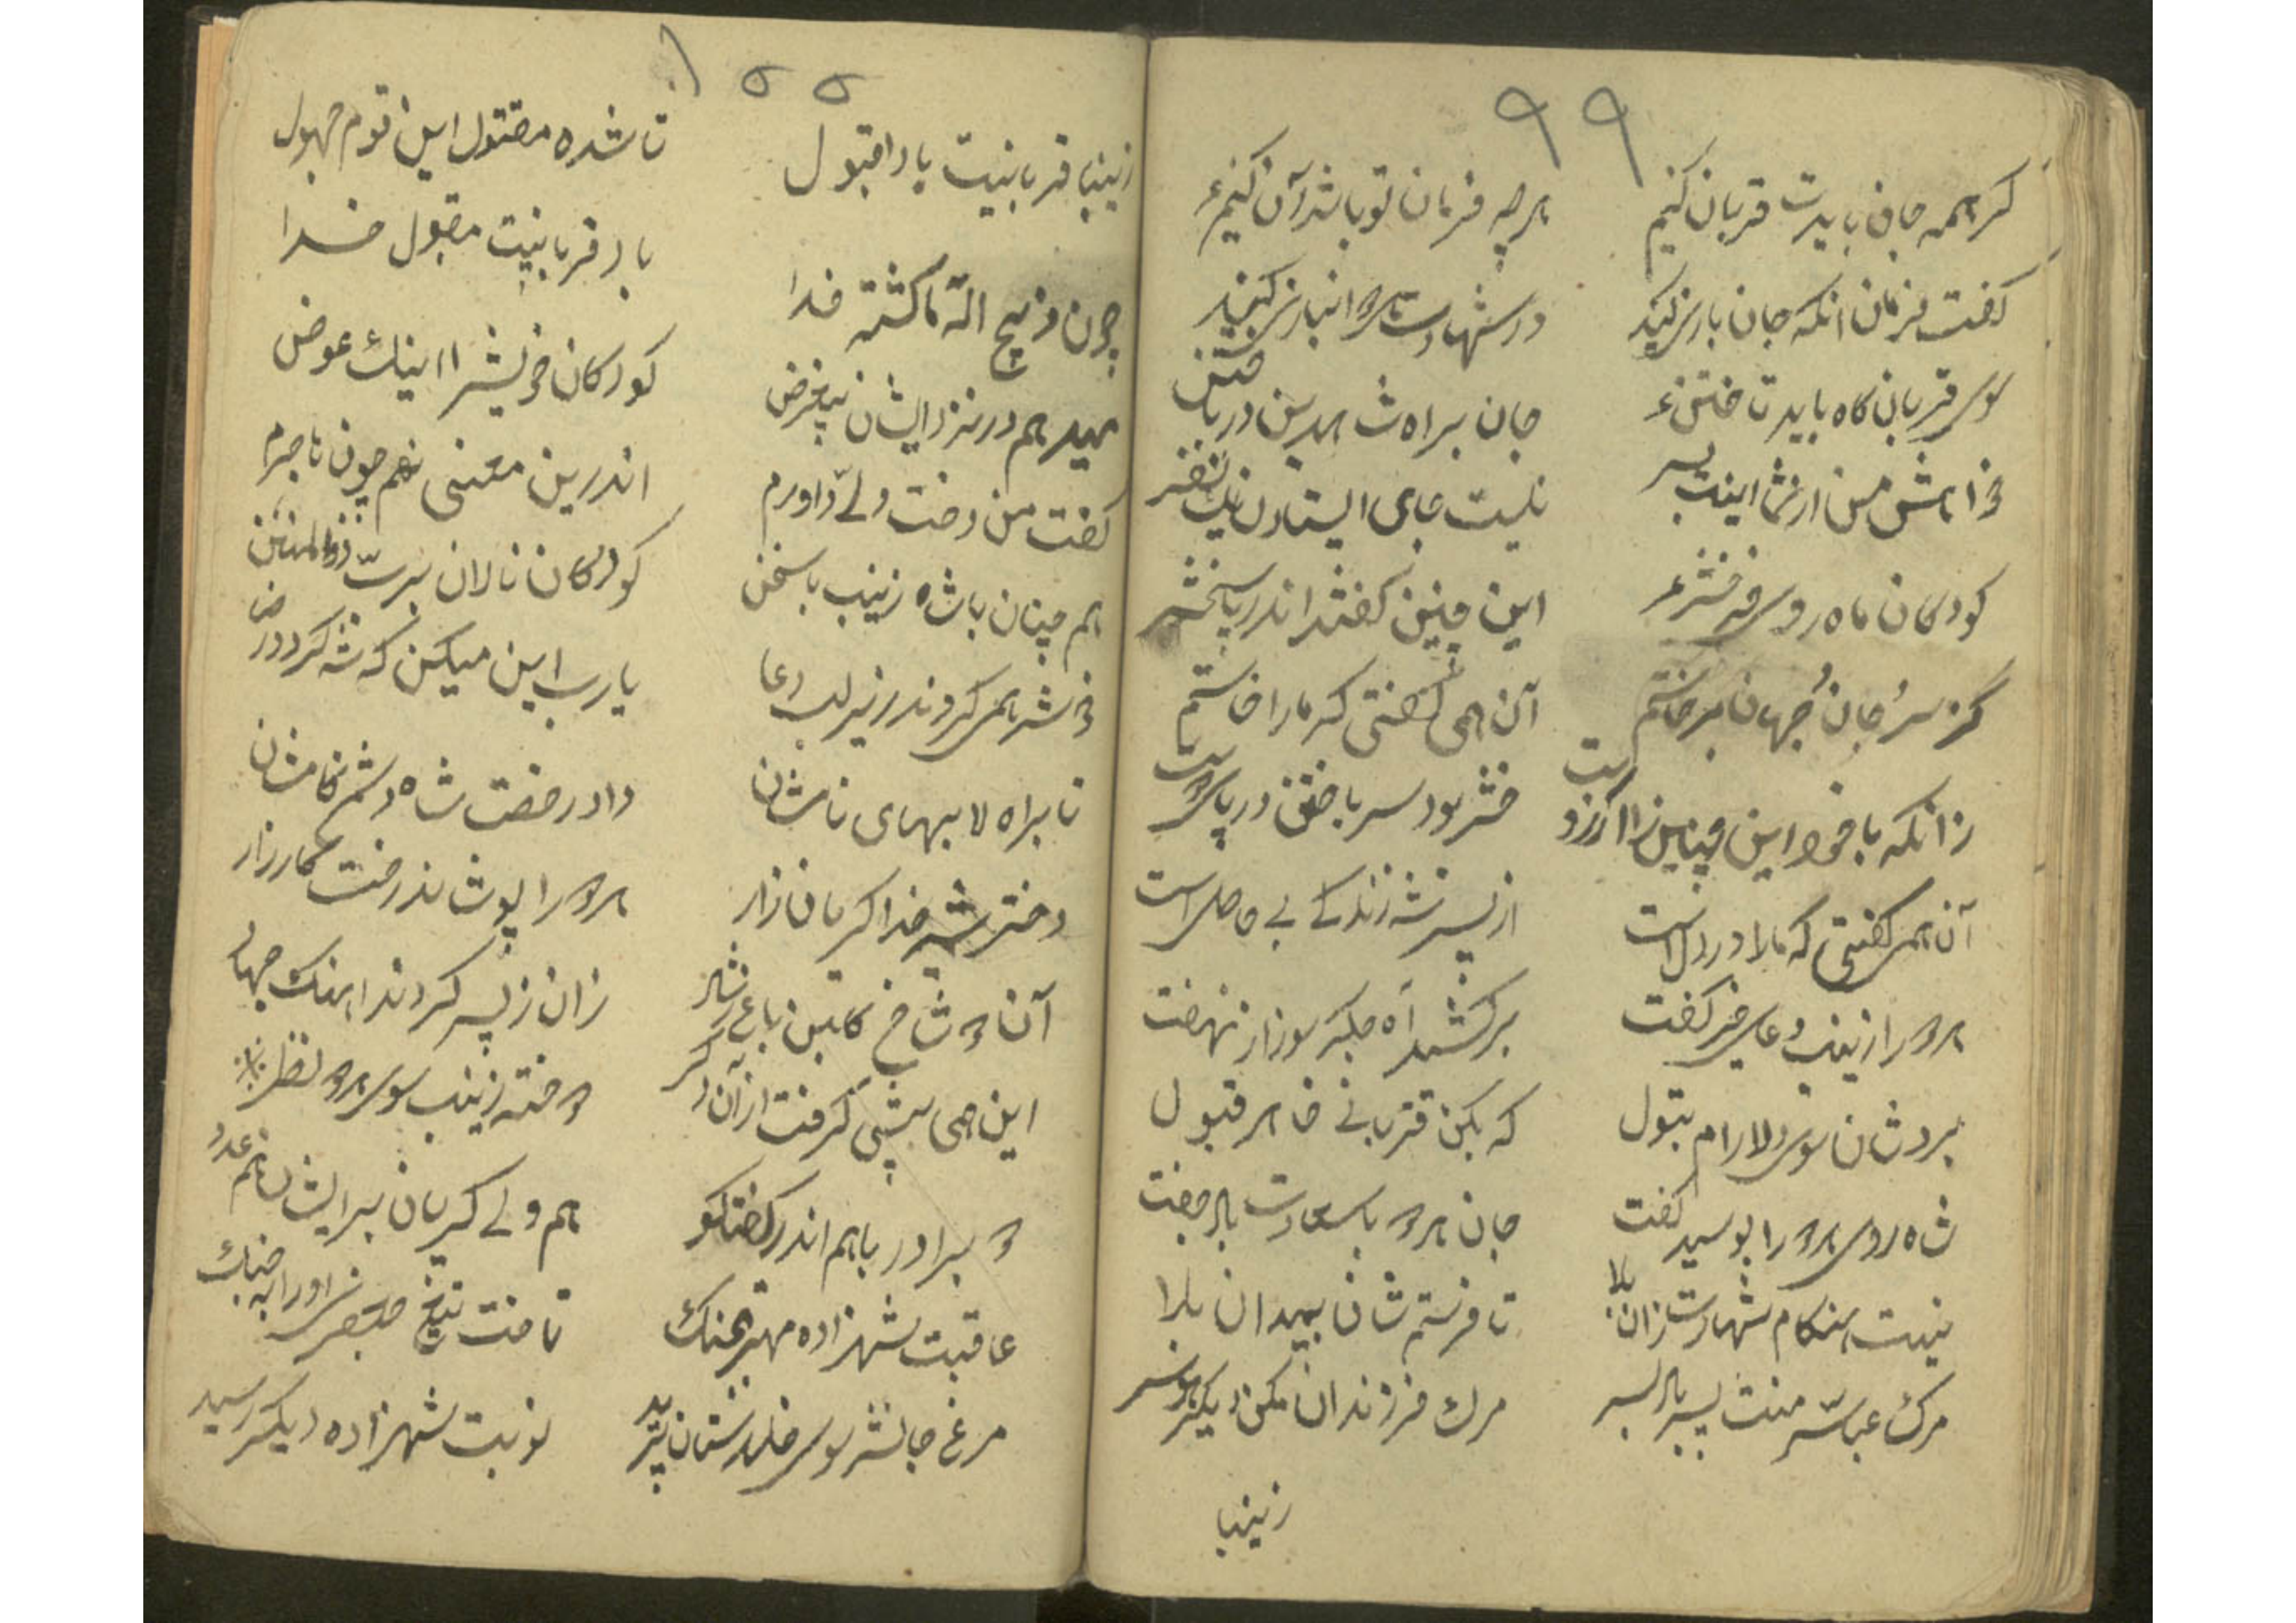 ۹۹
گر همه جان بایدت قربان کنیم هرچه فرمان تو باشد آن کنیم
گفت فرمان آنکه جان بازی کنید در شهادت هر دو انبازی کنید
سوی قربان گاه باید تاختن جان براه شاه دین در باختن
خواهش من از شما اینست نیست جای ایستادن یک نفر
کودکان ماه روی این چنین گفتند اندر پاسخش
کز سر جان و جهان برخاستم آن همی گفتی که ما را خاستم
زانکه با خود این چنین را آرزو است خوش بود سر باختن در پای دوست
آن همی گفتی که ما را در دل است از پس شه زندگی بی حاصل است
هر دو را زینب دعای خیر گفت برکشید آه جگر سوز از نهفت
برد شان سوی دلارام بتول که بکن قربانی خواهر قبول
شاه روی هر دو را بوسید گفت جان هر دو با سعادت باد جفت
نیست هنگام شهادت زان بلا تا فرستم شان بمیدان بلا
مرگ عباس منت بس باد بس مرگ فرزندان مکن دیگر هوس
زینبا
۱۰۰
زینبا قربانیت بادا قبول تا شده مقتول این قوم جهول
چون ذبیح الله ما کشته فدا باد قربانیت مقبول خدا
میدهم در نزد ایشان بیغرض کودکان خویش را اینک عوض
گفت من دخت ولی داورم اندرین معنی نه هم چون هاجرم
هم چنان با شاه زینب با سخن کودکان نالان بر ذوالمنن
خوش همی کردند در زیر لب دعا یا رب این میکن که شه گردد رضا
تا براه لابهای تا مشان داد رخصت شاه دشمن کامشان
دختر شیر خدا گریان زار هر دو را پوشاند رخت کارزار
آن دو شاخ گلبن باغ رشاد زان ز پس کردند آهنگ جهاد
این همی پیشی گرفت از آن دگر دوخته زینب سوی هر دو نظر
دو برادر با هم اندر گفتگو هم ولی گریان بر ایشان هم عدو
عاقبت شهزاده مهتر بجنگ تاخت تیغ را به جنگ
مرغ جانش سوی خلدستان پرید نوبت شهزاده دیگر رسید